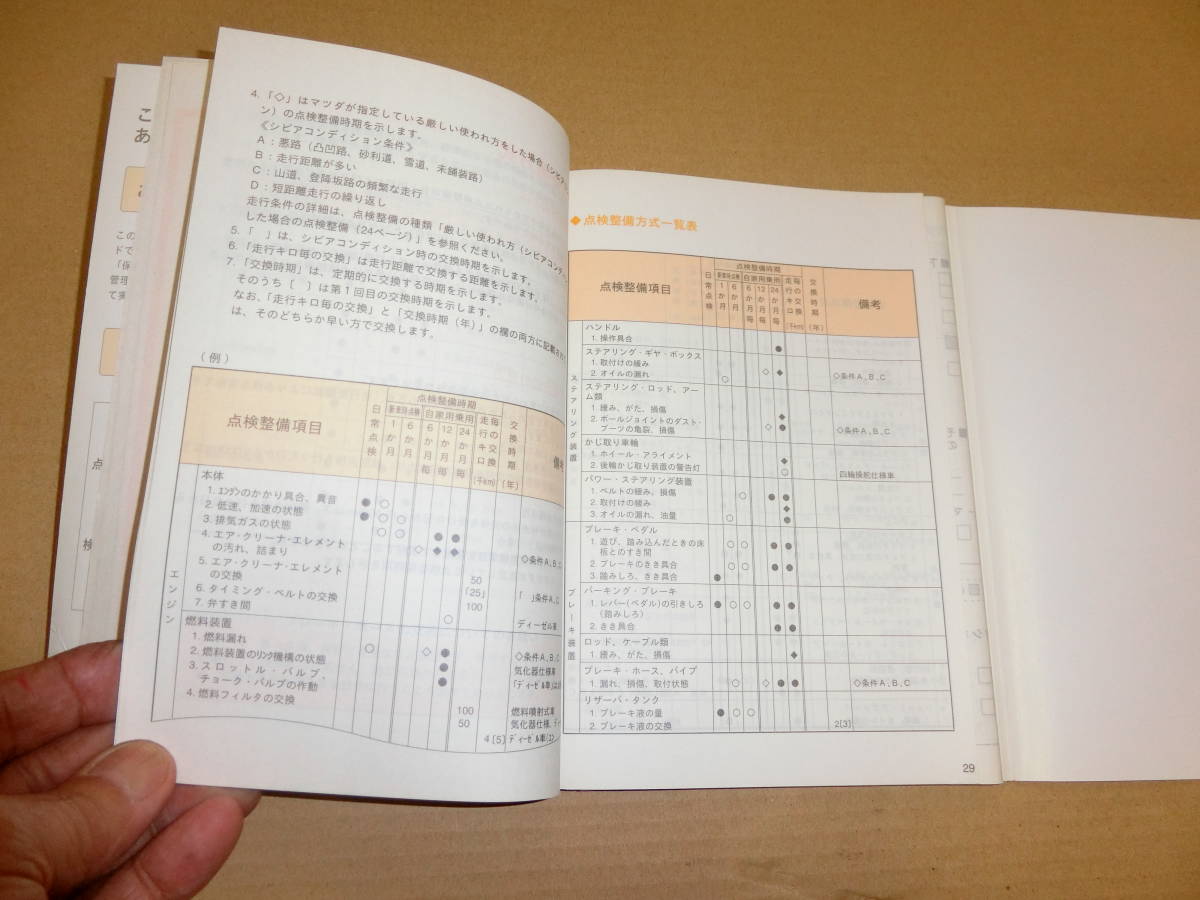 こ
あ
この
ドで
「保
管理
て実
点
検
4.「◇」はマツダが指定している厳しい使われ方をした場合（シビア
ン）の点検整備時期を示します。
《シビアコンディション条件》
A：悪路（凸凹路、砂利道、雪道、未舗装路）
B：走行距離が多い
C：山道、登降坂路の頻繁な走行
D：短距離走行の繰り返し
走行条件の詳細は、点検整備の種類「厳しい使われ方（シビアコンディ
した場合の点検整備（24ページ）」を参照ください。
5.「　」は、シビアコンディション時の交換時期を示します。
6.「走行キロ毎の交換」は走行距離で交換する距離を示します。
7.「交換時期」は、定期的に交換する時期を示します。
そのうち〔　〕は第1回目の交換時期を示します。
なお、「走行キロ毎の交換」と「交換時期（年）」の欄の両方に記載され
は、そのどちらか早い方で交換します。
（例）
点検整備項目
日常点検
点検整備時期
新車時点検
自家用乗用
1か月
6か月
6か月毎
12か月毎
24か月毎
走行キロ毎の交換
(千km)
交換時期
（年）
備考
エンジン
本体
1. ｴﾝｼﾞﾝのかかり具合、異音 ● ○
2. 低速、加速の状態 ● ○ ○
3. 排気ガスの状態 ○ ○ ● ●
4. エア・クリーナ・エレメント
の汚れ、詰まり ◇ ◆ ◆ ◇条件A,B,C
5. エア・クリーナ・エレメント
の交換 50
「25」 「　」条件A,C
6. タイミング・ベルトの交換 100
7. 弁すき間 ○ ディーゼル車
燃料装置
1. 燃料漏れ ○ ◇ ● ◇条件A,B,C
2. 燃料装置のﾘﾝｸ機構の状態 ● 気化器仕様車
3. スロットル・バルブ、
チョーク・バルブの作動 ●
4. 燃料フィルタの交換 100 燃料噴射式車
50 気化器仕様、ディ
4[5] ディーゼル車
◆点検整備方式一覧表
点検整備項目
日常点検
点検整備時期
新車時点検
自家用乗用
1か月
6か月
6か月毎
12か月毎
24か月毎
走行キロ毎の交換
(千km)
交換時期
（年）
備考
ステアリング装置
ハンドル
1. 操作具合 ●
ステアリング・ギヤ・ボックス
1. 取付けの緩み ◇ ◆ ◇条件A,B,C
2. オイルの漏れ ○
ステアリング・ロッド、アー
ム類
1. 緩み、がた、損傷 ◆
2. ボールジョイントのダスト・
ブーツの亀裂、損傷 ◇ ● ◇条件A,B,C
かじ取り車輪
1. ホイール・アライメント ◆
2. 後輪かじ取り装置の警告灯 ○ 四輪操舵仕様車
パワー・ステアリング装置
1. ベルトの緩み、損傷 ○ ● ●
2. 取付けの緩み ◆
3. オイルの漏れ、油量 ○ ●
ブレーキ装置
ブレーキ・ペダル
1. 遊び、踏み込んだときの床
板とのすき間 ○ ○ ● ●
2. ブレーキのきき具合 ○ ○ ● ●
3. 踏みしろ、きき具合 ●
パーキング・ブレーキ
1. レバー(ペダル)の引きしろ
（踏みしろ） ● ○ ○ ● ●
2. きき具合 ● ●
ロッド、ケーブル類
1. 緩み、がた、損傷 ◆
ブレーキ・ホース、パイプ
1. 漏れ、損傷、取付状態 ○ ◇ ● ● ◇条件A,B,C
リザーバ・タンク
1. ブレーキ液の量 ● ○ ○
2. ブレーキ液の交換 2[3]
29